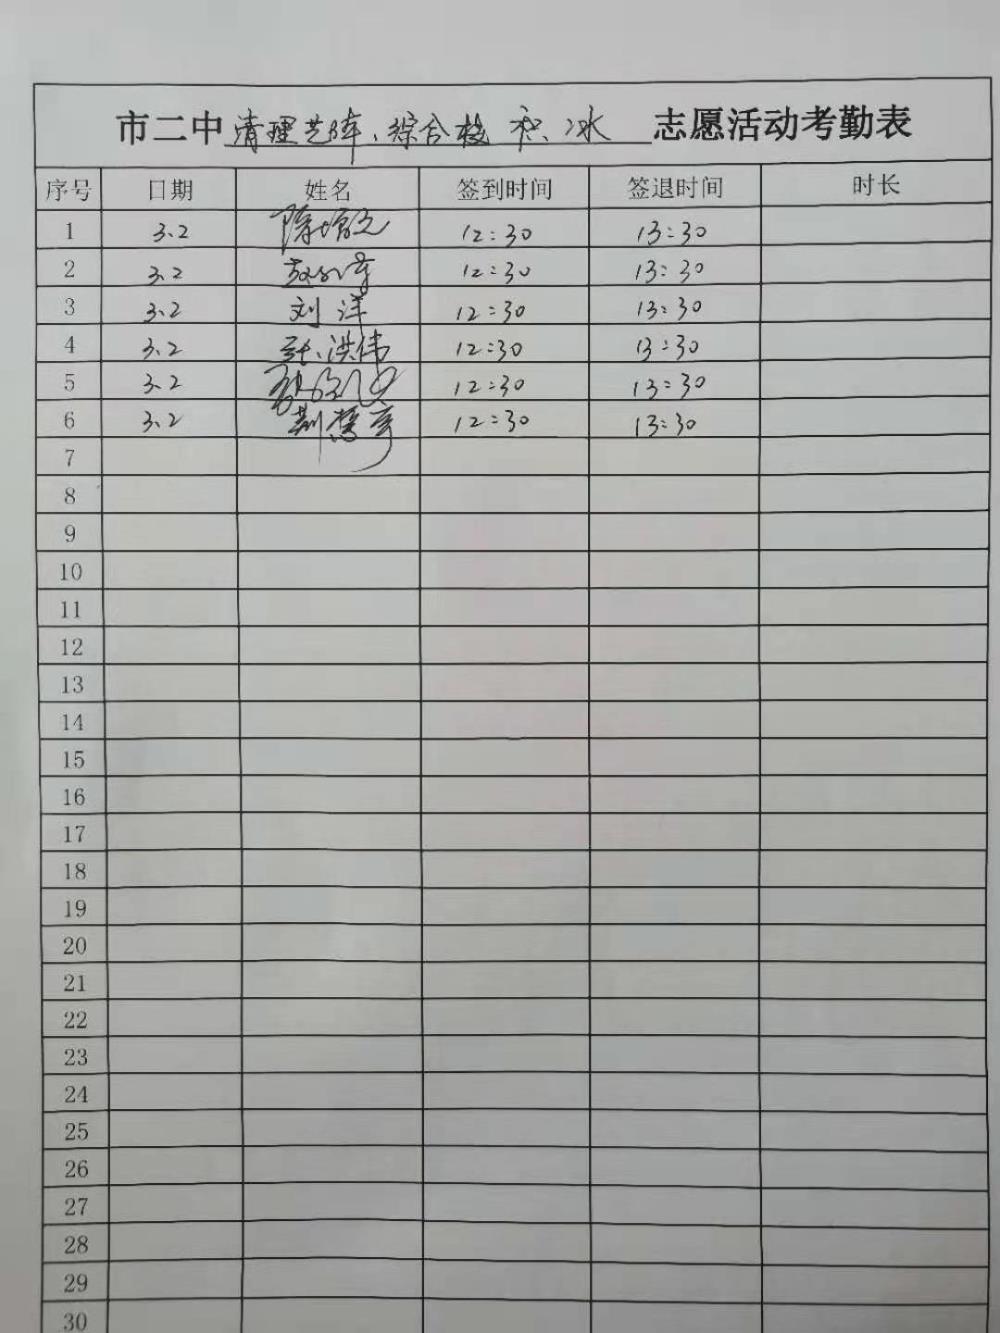 市二中清理艺阵、综合楼 积冰 志愿活动考勤表
序号 日期 姓名 签到时间 签退时间 时长
1 3.2 12:30 13:30
2 3.2 12:30 13:30
3 3.2 刘洋 12:30 13:30
4 3.2 张洪伟 12:30 13:30
5 3.2 12:30 13:30
6 3.2 12:30 13:30
7
8
9
10
11
12
13
14
15
16
17
18
19
20
21
22
23
24
25
26
27
28
29
30